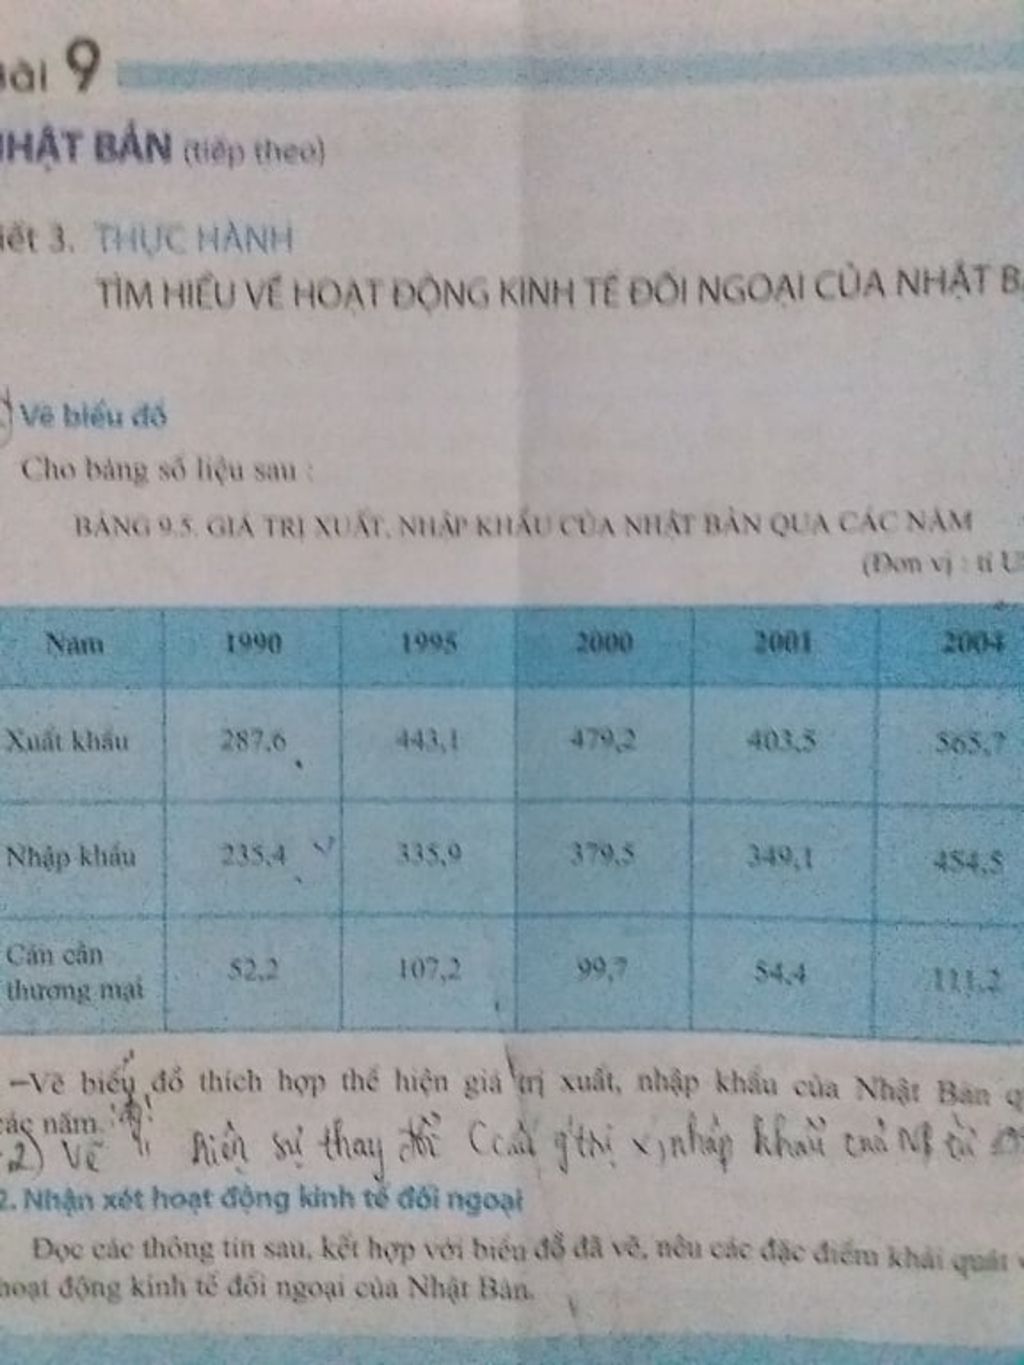 ài 9
HẬT BẢN (tiếp theo)
iết 3. THỰC HÀNH
TÌM HIỂU VỀ HOẠT ĐỘNG KINH TẾ ĐỐI NGOẠI CỦA NHẬT B
Vẽ biểu đồ
Cho bảng số liệu sau :
BẢNG 9.5. GIÁ TRỊ XUẤT, NHẬP KHẨU CỦA NHẬT BẢN QUA CÁC NĂM
(Đơn vị : tỉ U
Năm 1990 1995 2000 2001 2004
Xuất khẩu 287,6 443,1 479,2 403,5 565,7
Nhập khẩu 235,4 335,9 379,5 349,1 454,5
Cán cân
thương mại 52,2 107,2 99,7 54,4 111,2
–Vẽ biểu đồ thích hợp thể hiện giá trị xuất, nhập khẩu của Nhật Bản q
các năm.
2) Vẽ sự thay đổi nhập khẩu từ
2. Nhận xét hoạt động kinh tế đối ngoại
Đọc các thông tin sau, kết hợp với biểu đồ đã vẽ, nêu các đặc điểm khái quát
hoạt động kinh tế đối ngoại của Nhật Bản.